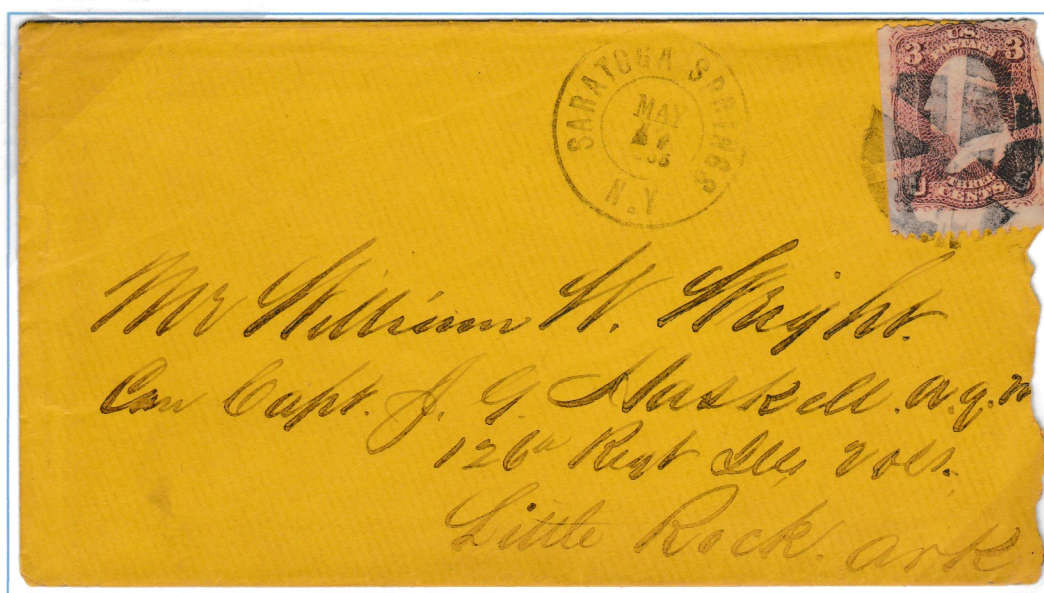 SARATOGA SPRINGS
MAY
N.Y
3 U.S. POSTAGE 3
THREE
U CENTS
Mr William W. Wright.
Care Capt. J. G. Haskell. A.Q.M
126th Regt Ills Vols.
Little Rock. Ark